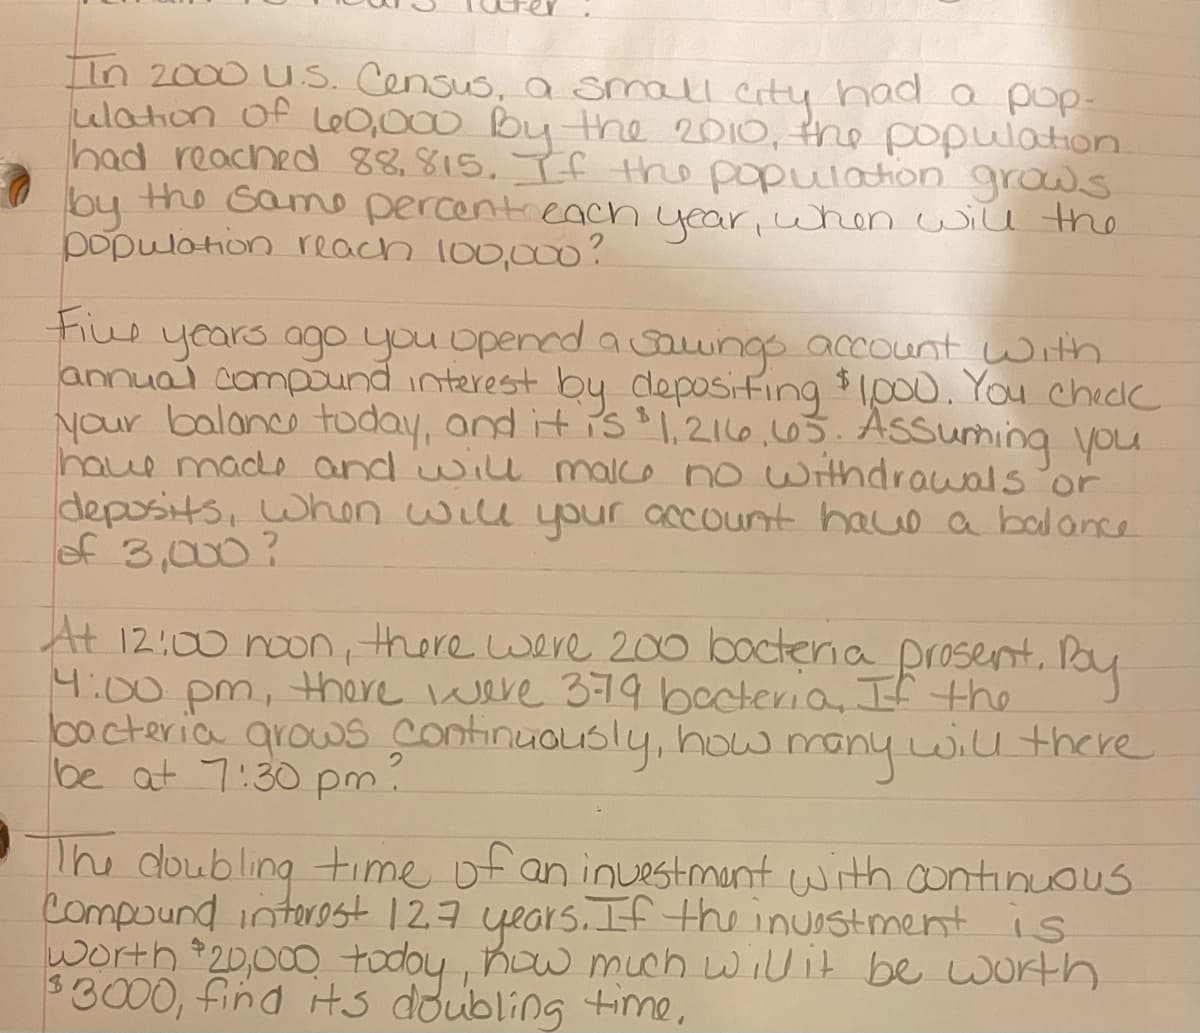 later?
In 2000 U.S. Census, a small city had a pop-
ulation of 60,000 By the 2010, the population
had reached 88,815. If the population grows
by the same percent each year, when will the
population reach 100,000?
Five years ago you opened a savings account with
annual compound interest by depositing $1,000. You check
your balance today, and it is $1,216.65. Assuming you
have made and will make no withdrawals or
deposits, when will your account have a balance
of 3,000?
At 12:00 noon, there were 200 bacteria present. By
4:00 pm, there were 379 bacteria, If the
bacteria grows continuously, how many will there
be at 7:30 pm?
The doubling time of an investment with continuous
compound interest 12.7 years. If the investment is
worth $20,000 today, how much will it be worth
$3000, find its doubling time.